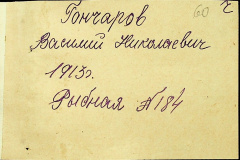 Гончаров 60 ч
Василий Николаевич
1913г.
Рыбная №184